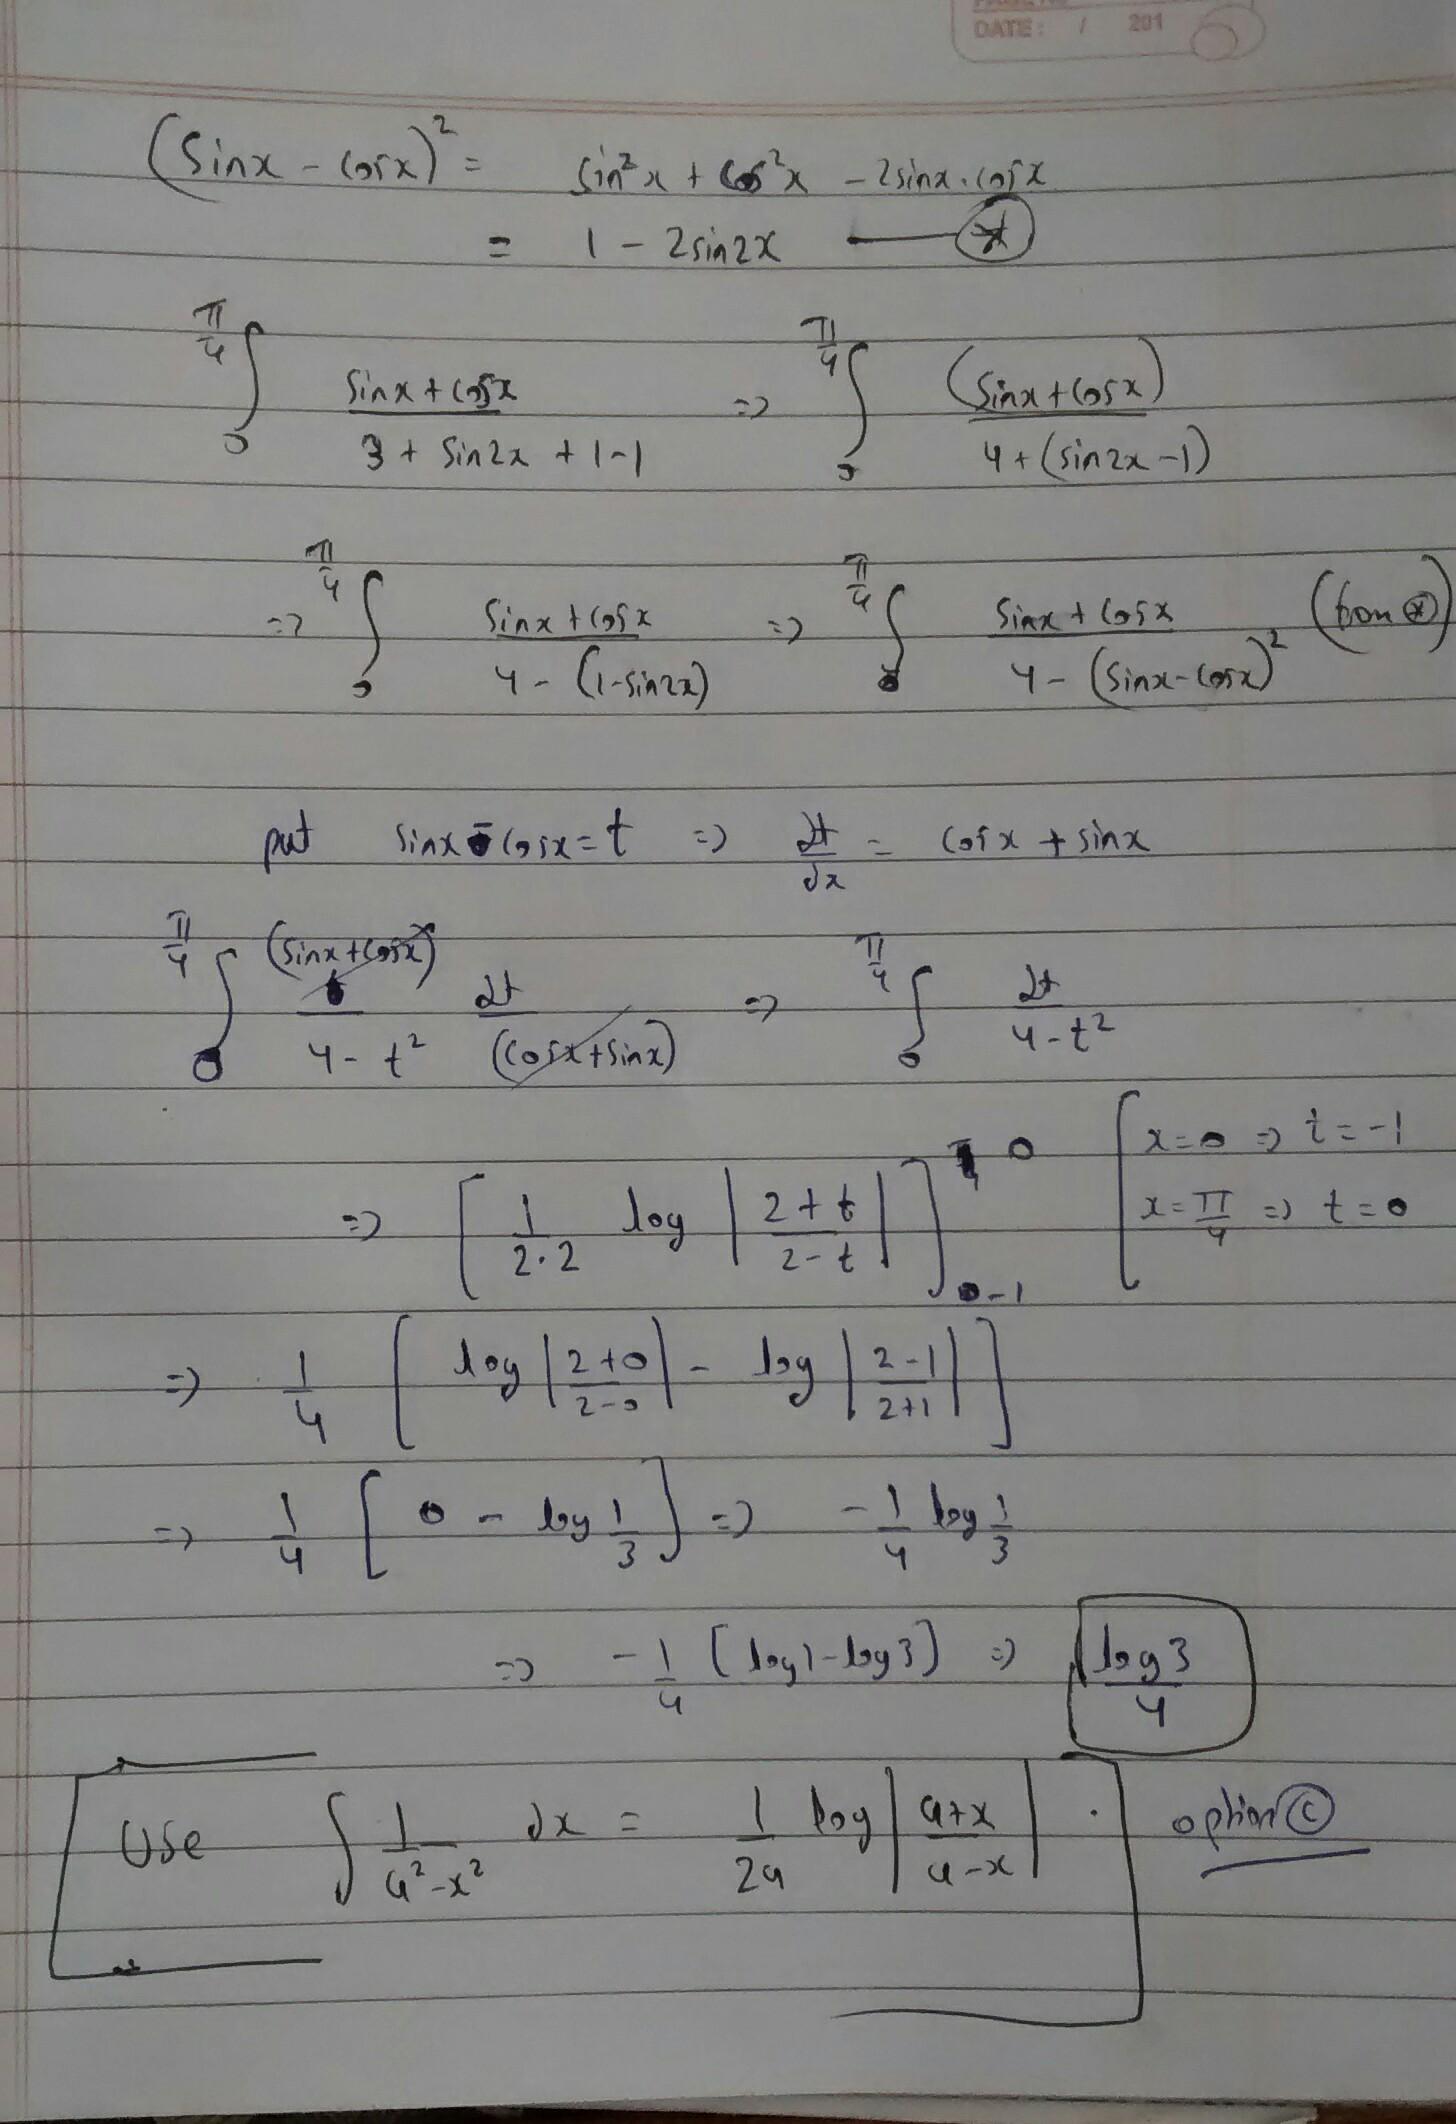 DATE: / 201
(sinx - cosx)² = sin²x + cos²x - 2sinx.cosx
= 1 - 2sin2x —— *
∫₀^(π/4) (sinx + cosx)/(3 + sin2x + 1-1) => ∫₀^(π/4) (sinx + cosx)/(4 + (sin2x - 1))
=> ∫₀^(π/4) (sinx + cosx)/(4 - (1 - sin2x)) => ∫₀^(π/4) (sinx + cosx)/(4 - (sinx - cosx)²) (from *)
put sinx - cosx = t => dt/dx = cosx + sinx
∫₀^(π/4) (sinx + cosx)/(4 - t²) dt/(cosx + sinx) => ∫₀^(π/4) dt/(4 - t²)
=> [1/(2.2) log |(2+t)/(2-t)|]₋₁⁰ [x=0 => t=-1
x=π/4 => t=0
=> 1/4 [log |(2+0)/(2-0)| - log |(2-1)/(2+1)|]
=> 1/4 [0 - log 1/3] => -1/4 log 1/3
=> -1/4 (log1 - log3) => log3/4
Use ∫ 1/(a²-x²) dx = 1/(2a) log |(a+x)/(a-x)| . option (c)